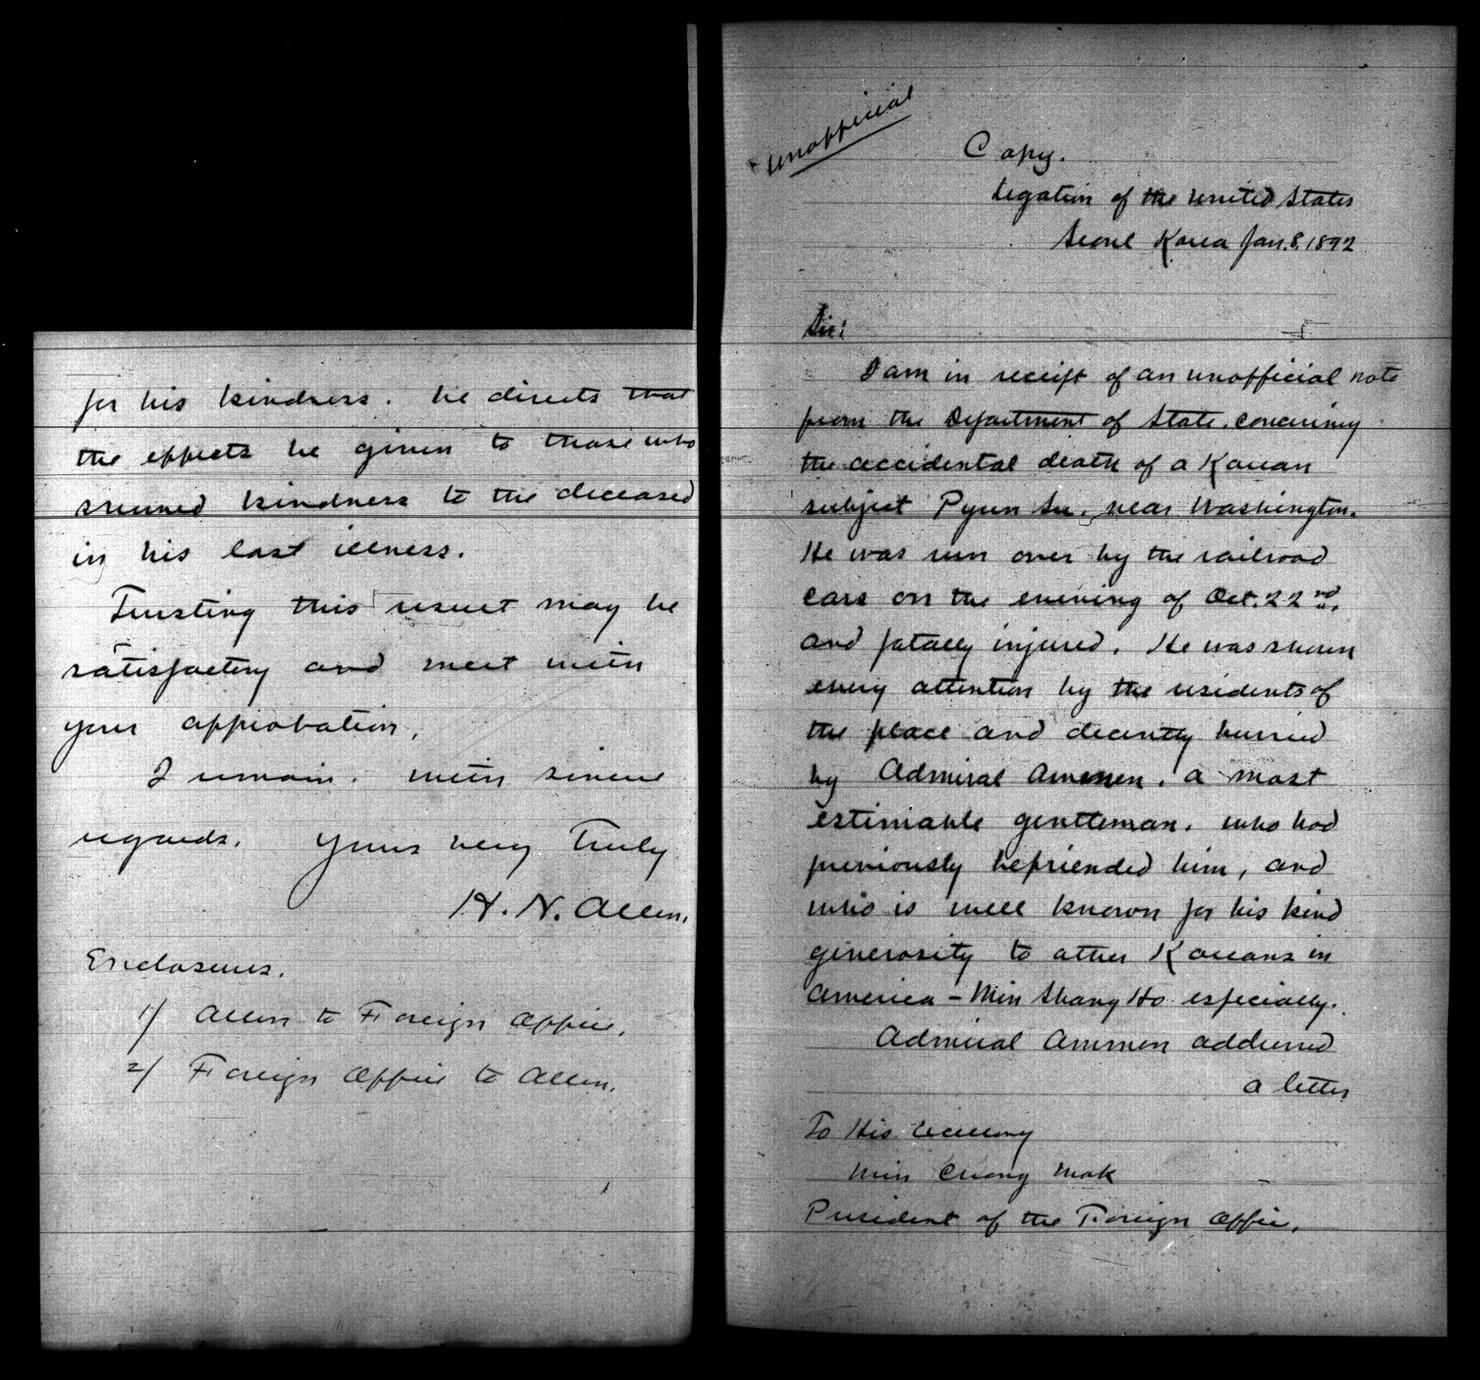 for his kindness. he directs that
the effects be given to those who
showed kindness to the deceased
in his last illness.
Trusting this result may be
satisfactory and meet with
your approbation,
I remain. with sincere
regards. Yours very Truly
H. N. Allen.
Enclosures.
1/ Allen to Foreign Office.
2/ Foreign Office to Allen.
Unofficial
Copy.
Legation of the United States
Seoul Korea Jan. 8. 1892
Sir:
I am in receipt of an unofficial note
from the Department of State. concerning
the accidental death of a Korean
subject Pyun Su, near Washington.
He was run over by the railroad
cars on the evening of Oct. 22nd.
and fatally injured. He was shown
every attention by the residents of
the place and decently burried
by Admiral Ammen. a most
estimable gentleman. who had
previously befriended him, and
who is well known for his kind
generosity to other Koreans in
America – Min Shang Ho especially.
Admiral Ammen addressed
a letter
To His Excellency
Min Chong Mok
President of the Foreign Office.